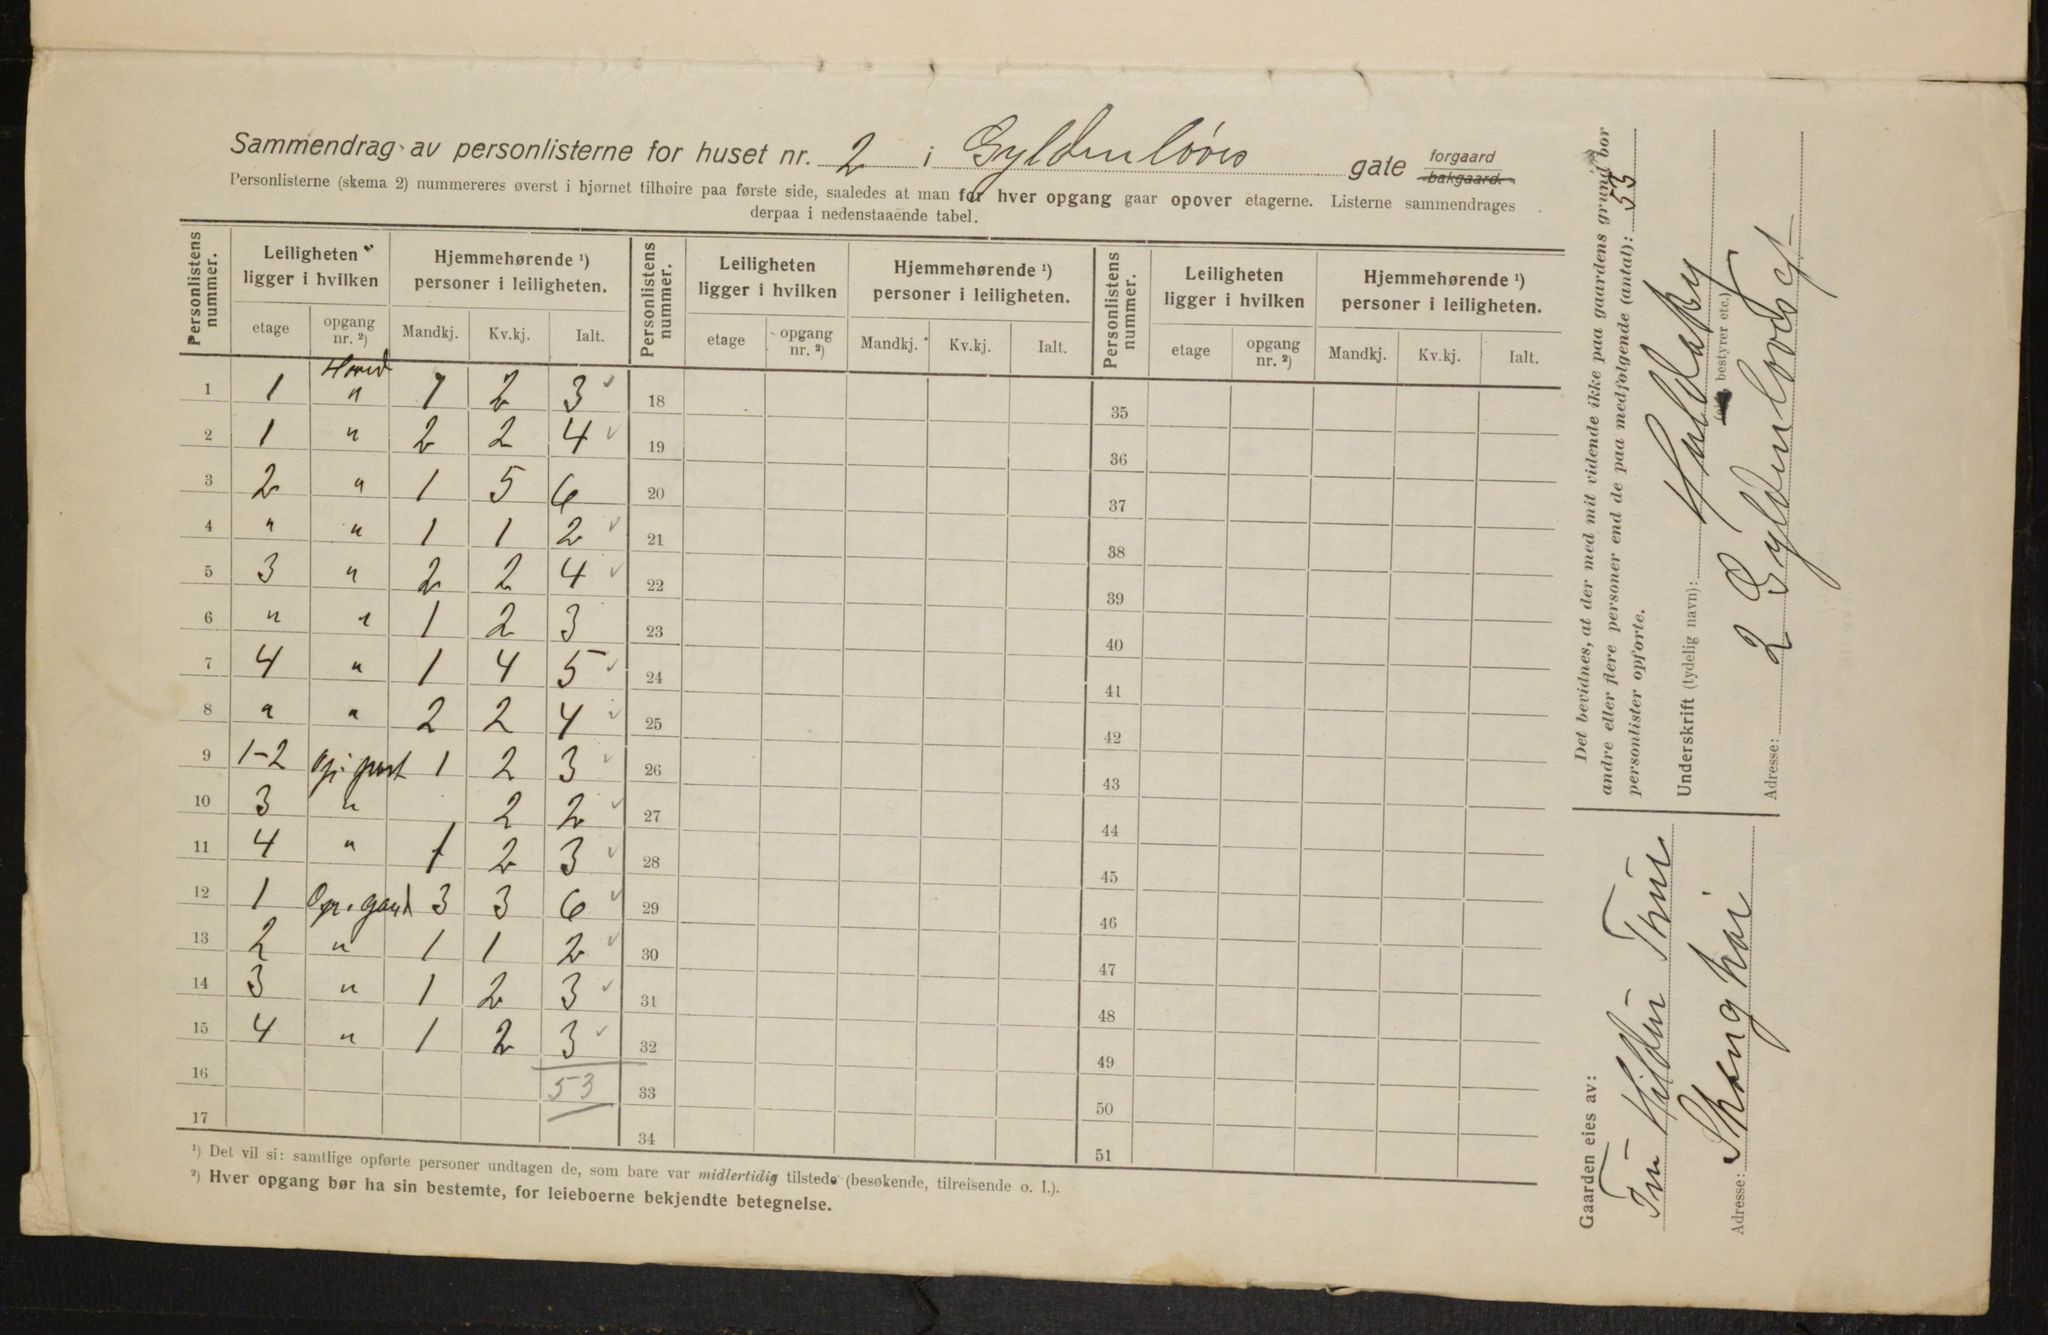 Sammendrag av personlisterne for huset nr. 2 i Gyldenløves gate forgaard bakgaard.
Personlisterne (skema 2) nummereres øverst i hjørnet tilhøire paa første side, saaledes at man for hver opgang gaar opover etagerne. Listerne sammendrages
derpaa i nedenstaaende tabel.
Personlistens nummer. Leiligheten ligger i hvilken Hjemmehørende ¹) personer i leiligheten. Personlistens nummer. Leiligheten ligger i hvilken Hjemmehørende ¹) personer i leiligheten. Personlistens nummer. Leiligheten ligger i hvilken Hjemmehørende ¹) personer i leiligheten.
etage opgang nr. ²) Mandkj. Kv.kj. Ialt. etage opgang nr. ²) Mandkj. Kv.kj. Ialt. etage opgang nr. ²) Mandkj. Kv.kj. Ialt.
Hoved
1 1 " 1 2 3 18 35
2 1 " 2 2 4 19 36
3 2 " 1 5 6 20 37
4 " " 1 1 2 21 38
5 3 " 2 2 4 22 39
6 " " 1 2 3 23 40
7 4 " 1 4 5 24 41
8 " " 2 2 4 25 42
9 1-2 Op. port 1 2 3 26 43
10 3 " 2 2 27 44
11 4 " 1 2 3 28 45
12 1 Op. gaard 3 3 6 29 46
13 2 " 1 1 2 30 47
14 3 " 1 2 3 31 48
15 4 " 1 2 3 32 49
16 53 33 50
17 34 51
¹) Det vil si: samtlige opførte personer undtagen de, som bare var midlertidig tilstede (besøkende, tilreisende o. l.).
²) Hver opgang bør ha sin bestemte, for leieboerne bekjendte betegnelse.
Det bevidnes, at der med mit vidende ikke paa gaardens grund bor
andre eller flere personer end de paa medfølgende (antal): 53
personlister opførte.
Underskrift (tydelig navn):
(eier, bestyrer etc.)
Adresse: 2 Gyldenløvesgt
Gaarden eies av:
Adresse: Shanghai